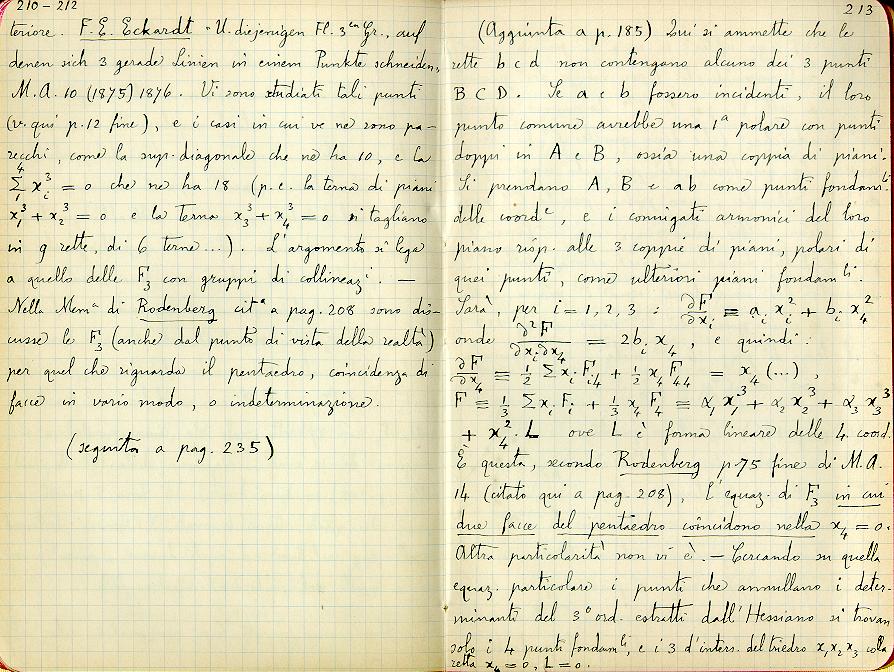 210-212
teriore. F. E. Eckardt "U. diejenigen Fl. 3en Gr., auf
denen sich 3 gerade Linien in einem Punkte schneiden,
M.A. 10 (1875) 1876. Vi sono studiati tali punti
(v. qui p. 12 fine), e i casi in cui ve ne sono pa-
recchi, come la sup. diagonale che ne ha 10, e la
Σ₁⁴ xᵢ³ = 0 che ne ha 18 (p. e. la terna di piani
x₁³ + x₂³ = 0 e la terna x₃³ + x₄³ = 0 si tagliano
in 9 rette, di 6 terne...). L'argomento si lega
a quello delle F₃ con gruppi di collineazⁱ. —
Nella Memᵃ di Rodenberg citᵃ a pag. 208 sono dis-
cusse le F₃ (anche dal punto di vista della realtà)
per quel che riguarda il pentaedro, coincidenza di
facce in vario modo, o indeterminazione.
(seguita a pag. 235)
213
(Aggiunta a p. 185) Qui si ammette che le
rette b c d non contengano alcuno dei 3 punti
B C D. Se a e b fossero incidenti, il loro
punto comune avrebbe una 1ᵃ polare con punti
doppi in A e B, ossia una coppia di piani.
Si prendano A, B e ab come punti fondamˡⁱ
delle coordᵉ, e i coniugati armonici del loro
piano risp. alle 3 coppie di piani, polari di
quei punti, come ulteriori piani fondamˡⁱ.
Sarà, per i = 1, 2, 3 : ∂F/∂xᵢ ≡ aᵢ xᵢ² + bᵢ x₄²
onde ∂²F/∂xᵢ∂x₄ = 2bᵢ x₄, e quindi:
∂F/∂x₄ ≡ ½ Σxᵢ Fᵢ₄ + ½ x₄ F₄₄ = x₄ (...),
F ≡ ⅓ Σxᵢ Fᵢ + ⅓ x₄ F₄ ≡ α₁ x₁³ + α₂ x₂³ + α₃ x₃³
+ x₄². L ove L è forma lineare delle 4 coord.
È questa, secondo Rodenberg p. 75 fine di M.A.
14 (citato qui a pag. 208), l'equaz. di F₃ in cui
due facce del pentaedro coincidono nella x₄ = 0.
Altra particolarità non vi è. — Cercando su quella
equaz. particolare i punti che annullano i deter-
minanti del 3º ord. estratti dall'Hessiano si trovan
solo i 4 punti fondamˡⁱ, e i 3 d'inters. del triedro x₁x₂x₃ colla
retta x₄ = 0, L = 0.